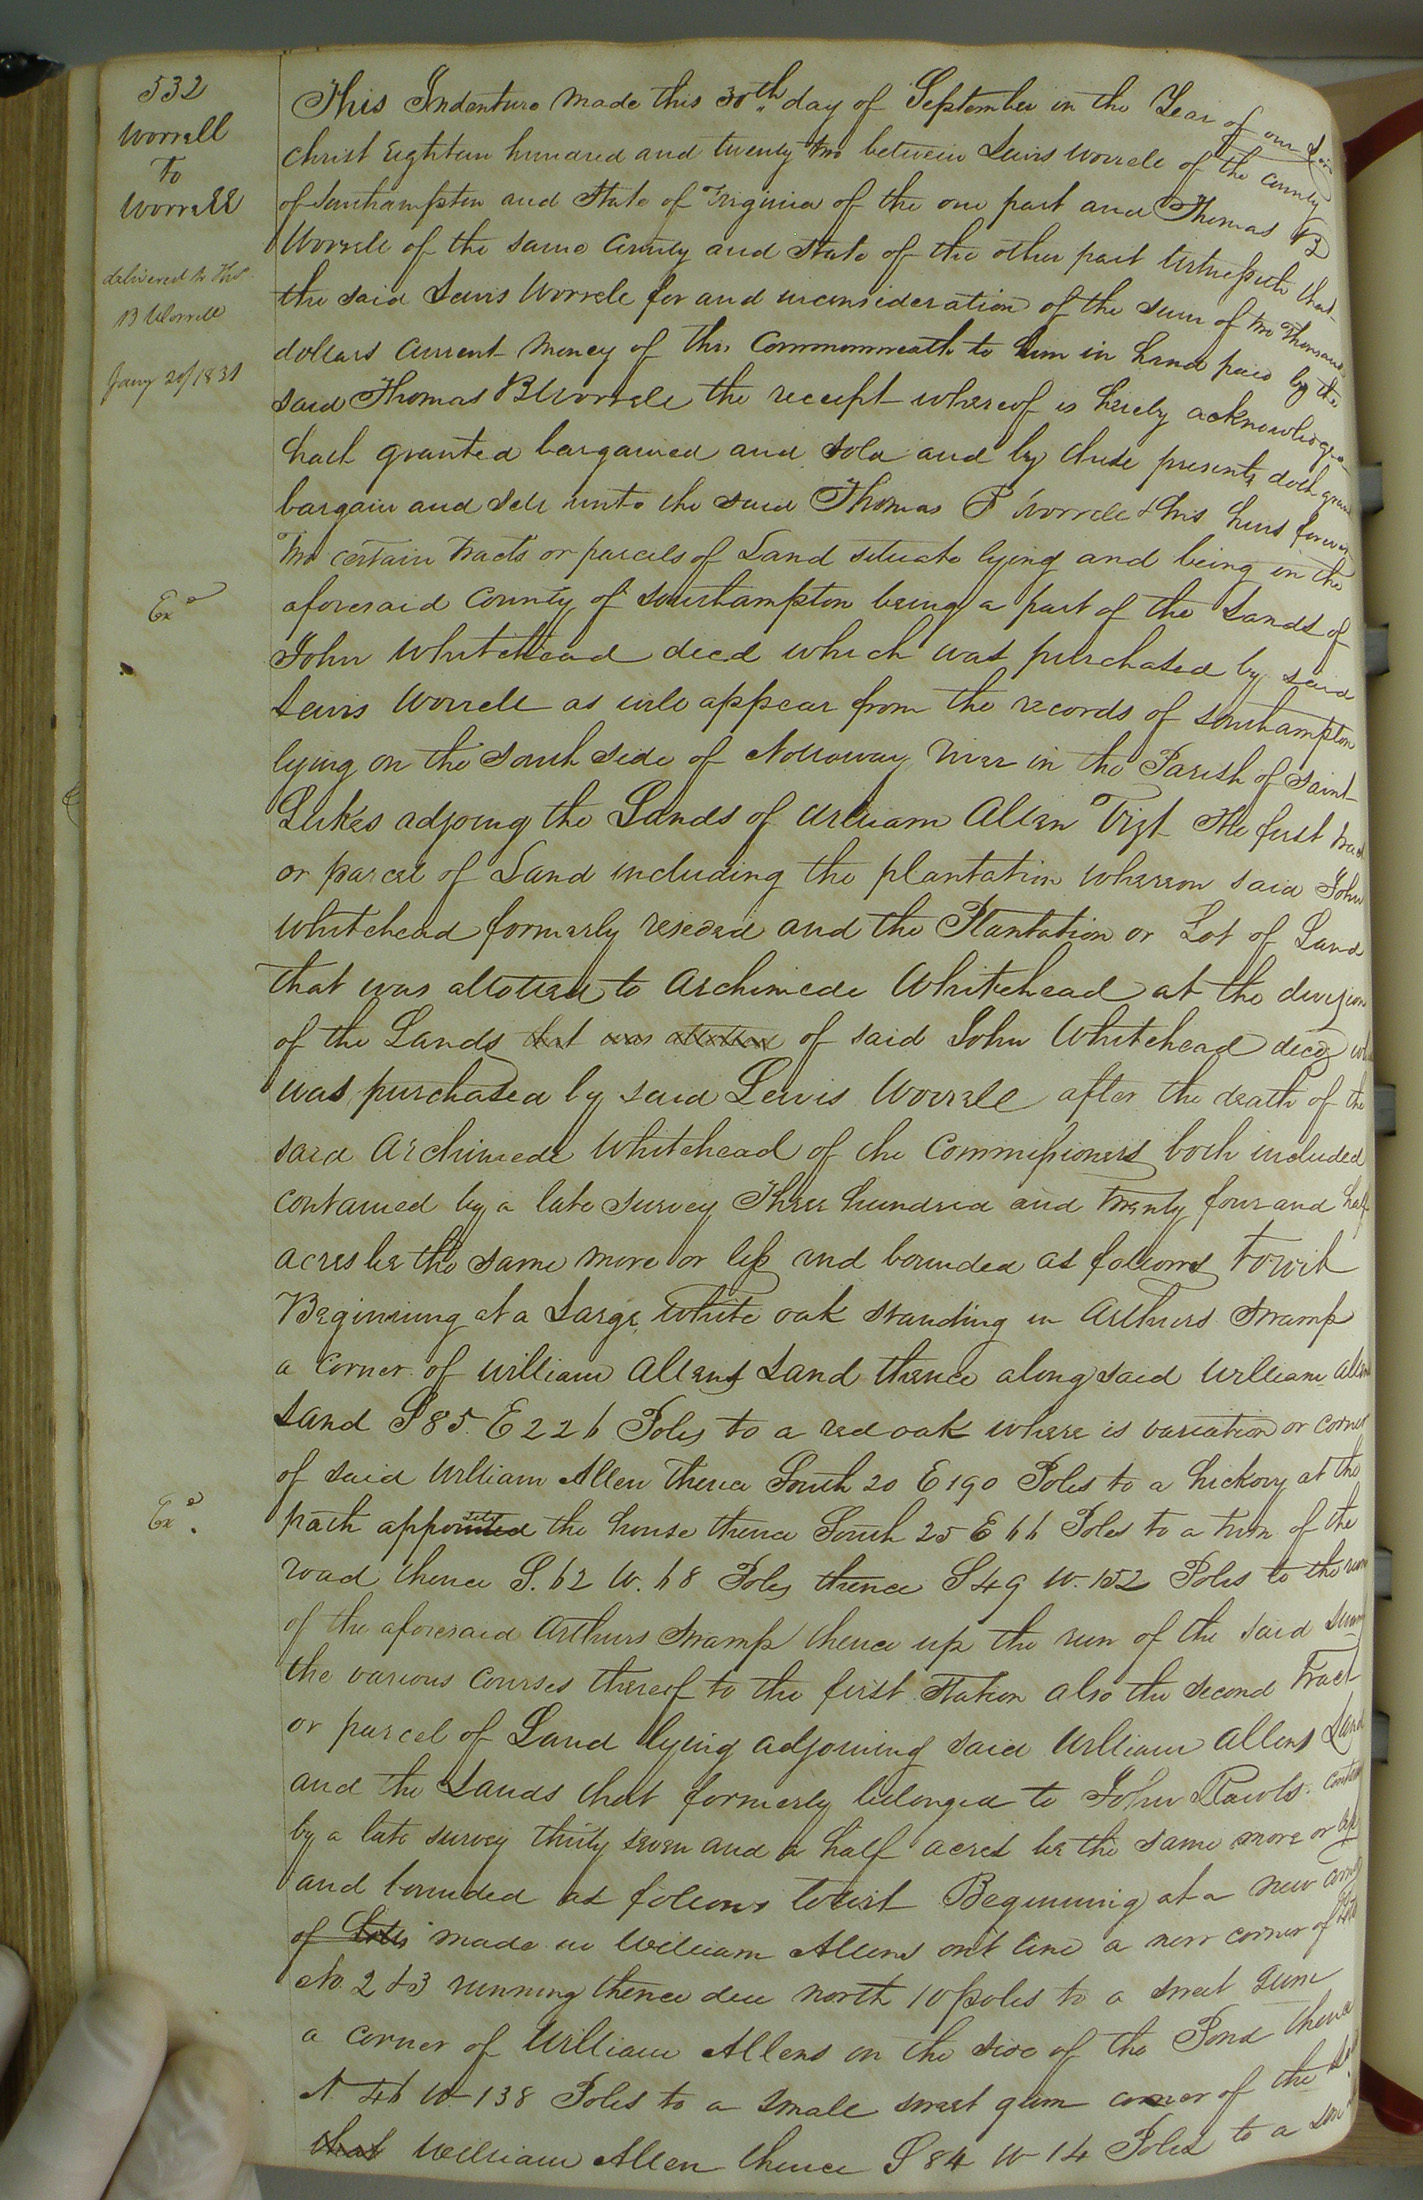 532
Worrell
To
Worrell
delivered to Thos
B Worrell
Jany 20/1831
This Indenture made this 30th day of September in the Year of our
Christ Eighteen hundred and twenty two between Lewis Worrell of the county
of Southampton and State of Virginia of the one part and Thomas B
Worrell of the same County and State of the other part Witnesseth that
the said Lewis Worrell for and inconsideration of the sum of two Thousand
dollars Current Money of this Commonwealth to him in hand paid by the
said Thomas B Worrell the receipt whereof is hereby acknowledged
hath granted bargained and sold and by these presents doth grant
bargain and sell unto the said Thomas B Worrell & his heirs forever
two certain tracts or parcels of Land situate lying and being in the
Exd
aforesaid County of Southampton being a part of the Lands of
John Whitehead decd which was purchased by said
Lewis Worrell as will appear from the records of Southampton
lying on the South side of Nottoway River in the Parish of Saint
Lukes adjoing the Lands of William Allen Vizt The first tract
or parcel of Land including the plantation whereon said John
Whitehead formerly resided and the Plantation or Lot of Land
that was allotted to Archimede Whitehead at the division
of the Lands that was allotted of said John Whitehead decd
was purchased by said Lewis Worrell after the death of the
said Archimede Whitehead of the Commissioners both included
contained by a late survey Three hundred and twenty four and half
acres be the same more or less and bounded as follows towit
Beginning at a Large White oak standing in Arthurs Swamp
a corner of William Allens Land thence along said William Allens
Land S 85 E 226 Poles to a red oak where is variation or corner
of said William Allen thence South 20 E 190 Poles to a hickory at the
Exd.
path appointed the house thence South 25 E 66 Poles to a turn of the
road thence S. 62 W. 68 Poles thence S 49 W. 152 Poles to the run
of the aforesaid Arthurs Swamp thence up the run of the said Swamp
the various courses thereof to the first Station also the second Tract
or parcel of Land lying adjoining said William Allens Land
and the Lands that formerly belonged to John Rawls
by a late survey thirty seven and a half acres be the same more or less
and bounded as follows towit Beginning at a new corner
of Lots made in William Allens out line a new corner of Lots
No. 2 & 3 running thence due north 10 poles to a sweet gum
a corner of William Allens on the side of the Pond thence
N. 46 W. 138 Poles to a small sweet gum corner of the
that William Allen thence S 84 W 14 Poles to a